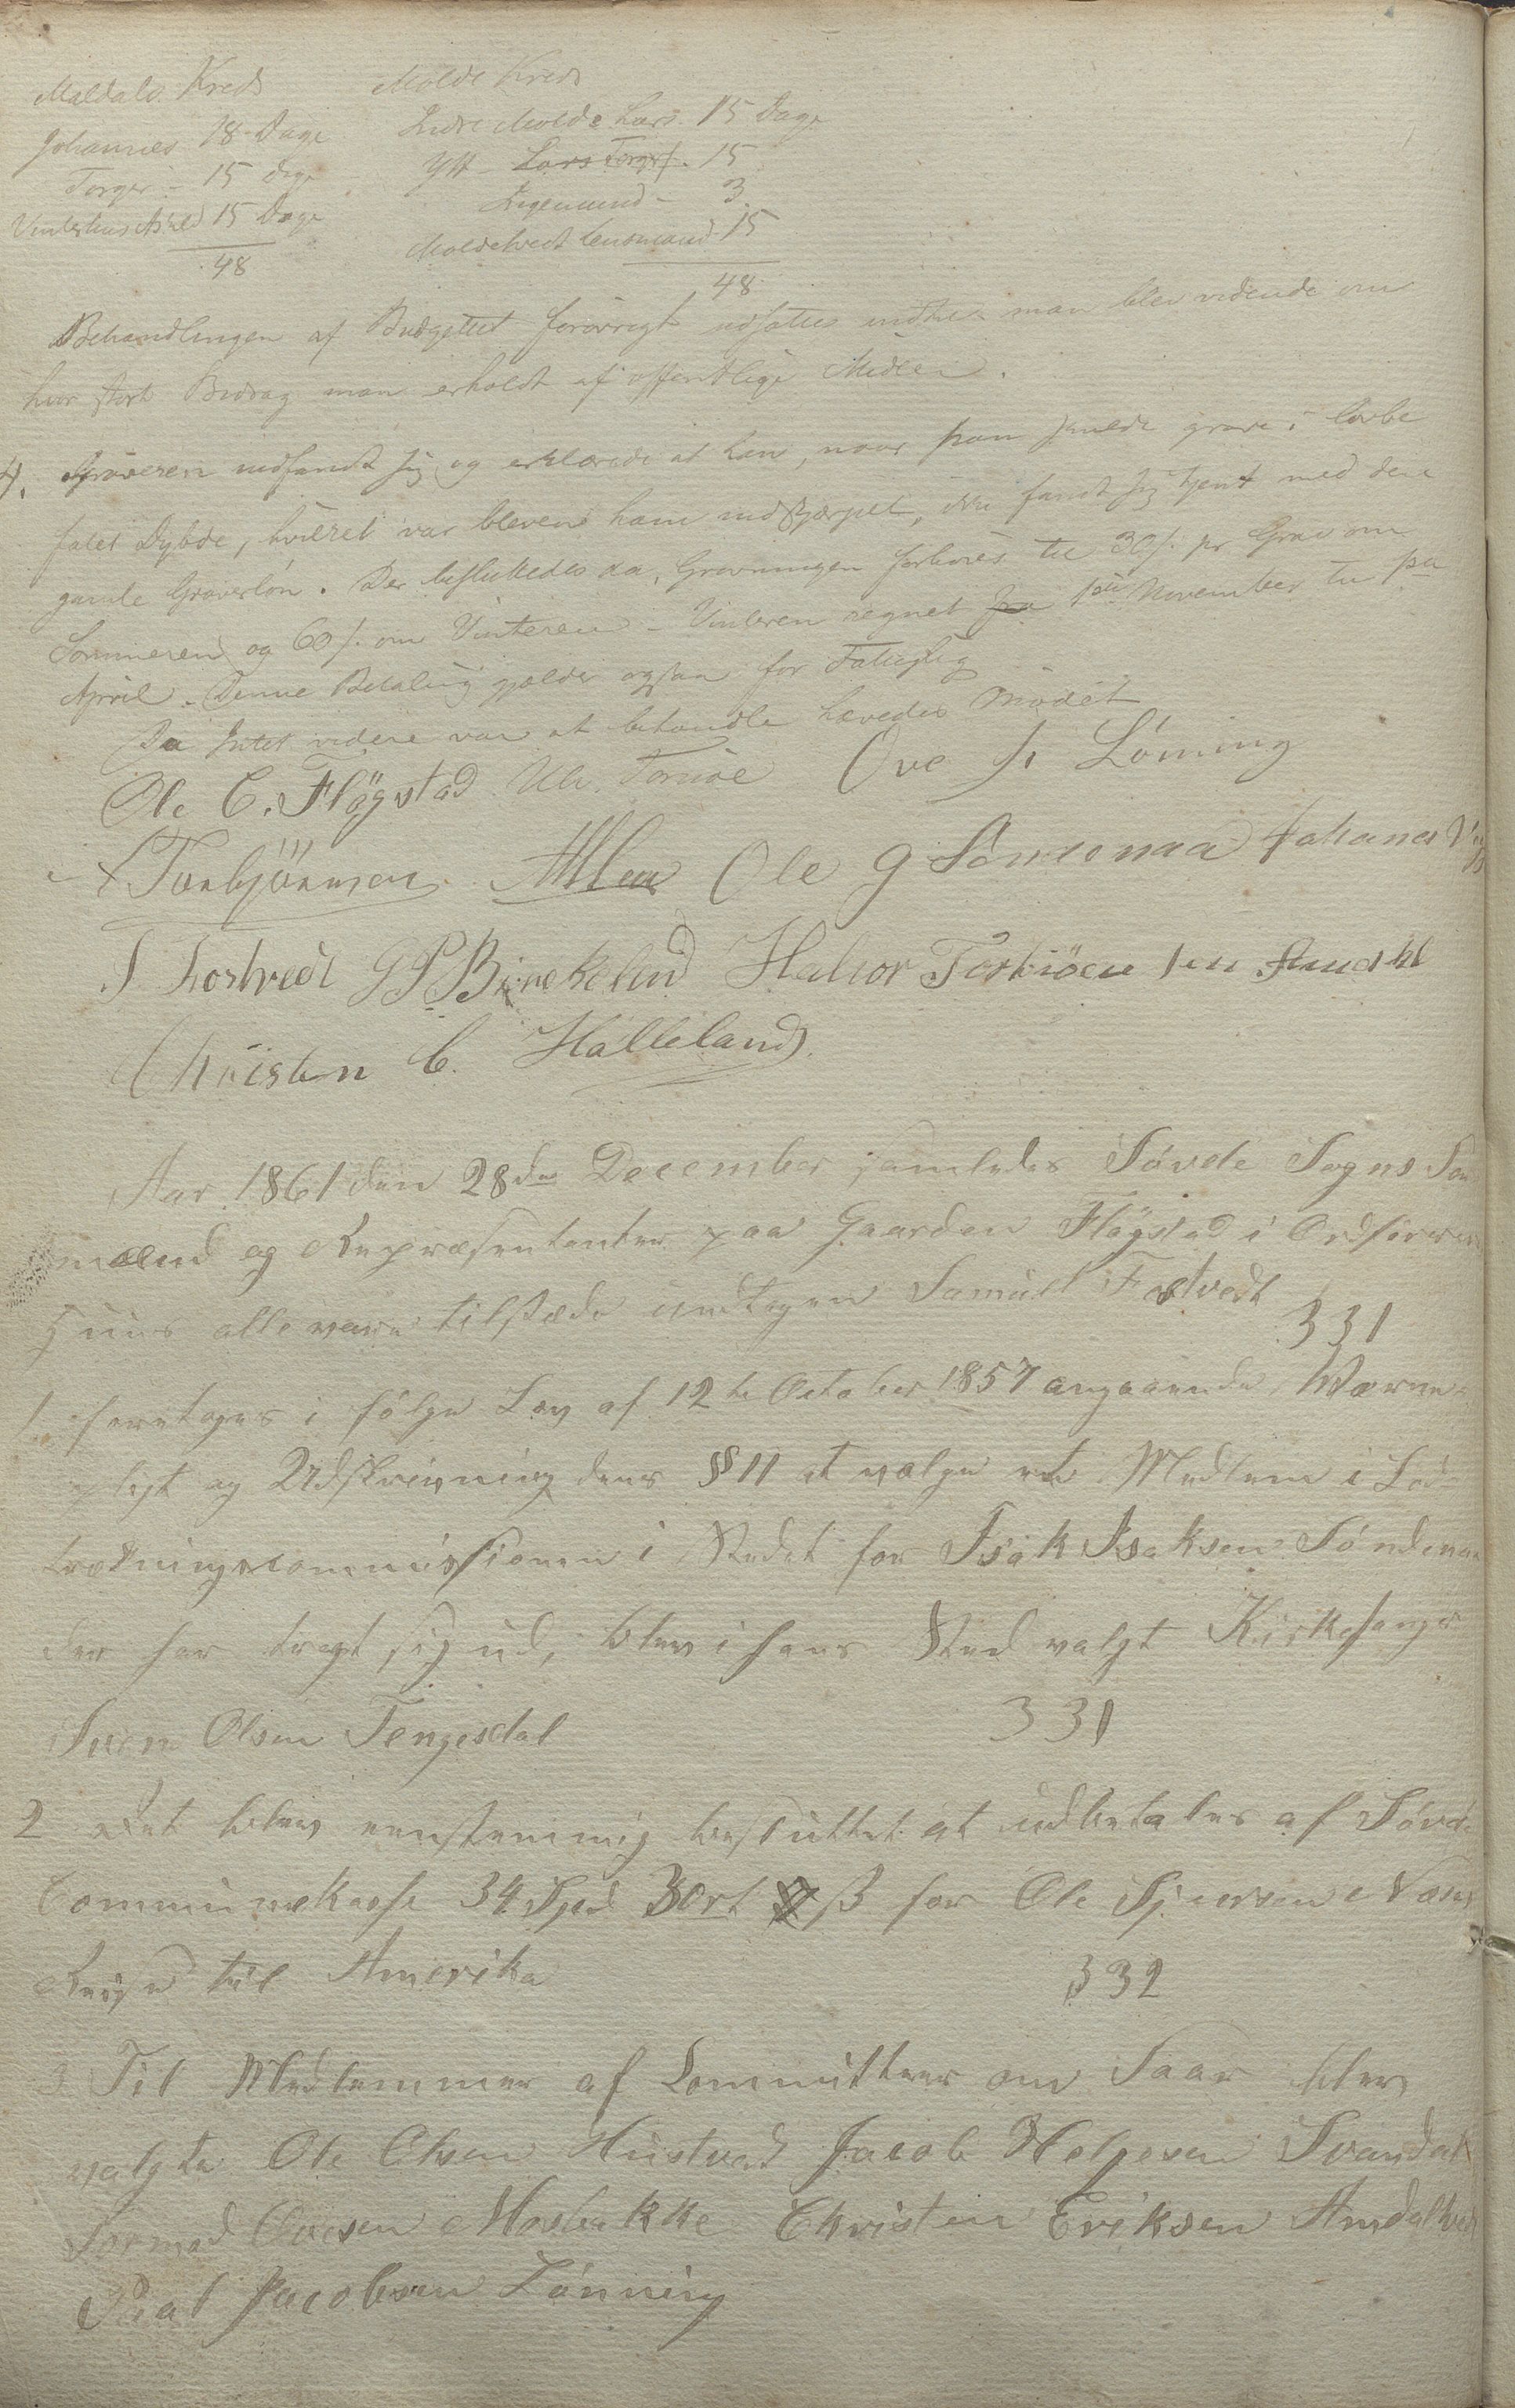 Maldals Kreds
Johannes 18 Dage
Torger - 15 Dage
Vinterhus Askild 15 Dage
48
Molde Kreds
Indre Molde Lars 15 Dage
Ytt - Lars Torgers. 15
Sigemund - 3
Moldetvedt lensmand 15
48
Behandlingen af Budgettet forøvrigt udsattes indtil man blev vidende om
hvor stort Bidrag man erholdt af offentlige Midler.
4. Graveren indfandt sig og erklærede at han, naar han skulde grave i lovbe
falet Dybde, hvilket var bleven ham indskjærpet, ikke fandt sig tjent med den
gamle Graverløn. Der besluttedes da, Gravningen forhøies til 30 s. pr Grav om
Sommeren og 60 s. om Vinteren - Vinteren regnet fra 1ste November til 1ste
April. Denne Betaling gjælder ogsaa for Fattiglig
Da Intet videre var at behandle hævedes Mødet
Ole C. Fløgstad Ulr. Tornøe Ove H Lönning
Torbjörnsen Ole G Söndenaa Johanes
S Fostvedt G P Birekeland Halvor Toskiöen
Christen C. Halleland
Aar 1861 den 28de December samledes Søvde Sogns For
mænd og Repræsentanter paa Gaarden Fløgstad i Ordførerens
Huus alle vare tilstæde undtagen Samuel Fostvedt
331
1. foretoges i følge Lov af 12te October 1857 angaaende Værne-
pligt og Udskrivning dens §11 at vælge et Medlem i Lod-
trækningscommissionen i Stedet for Isak Isaksen Söndenaa
der har tragt sig ud, blev i hans Sted valgt Kirkesanger
Sven Olsen Tengesdal 331
2 Det blev eenstemmig besluttet at udbetales af Søvde
Communekasse 34 Spd 3 ort ß for Ole Sjursen Næs
Reise til Amerika 332
3 Til Medlemmer af Committeer om Saar blev
valgte Ole Olsen Hustvedt Jacob Helgesen Svandal
Tormod Ovesen Mosbakke Christen Eriksen Amdal
Peal Jacobsen Lönning